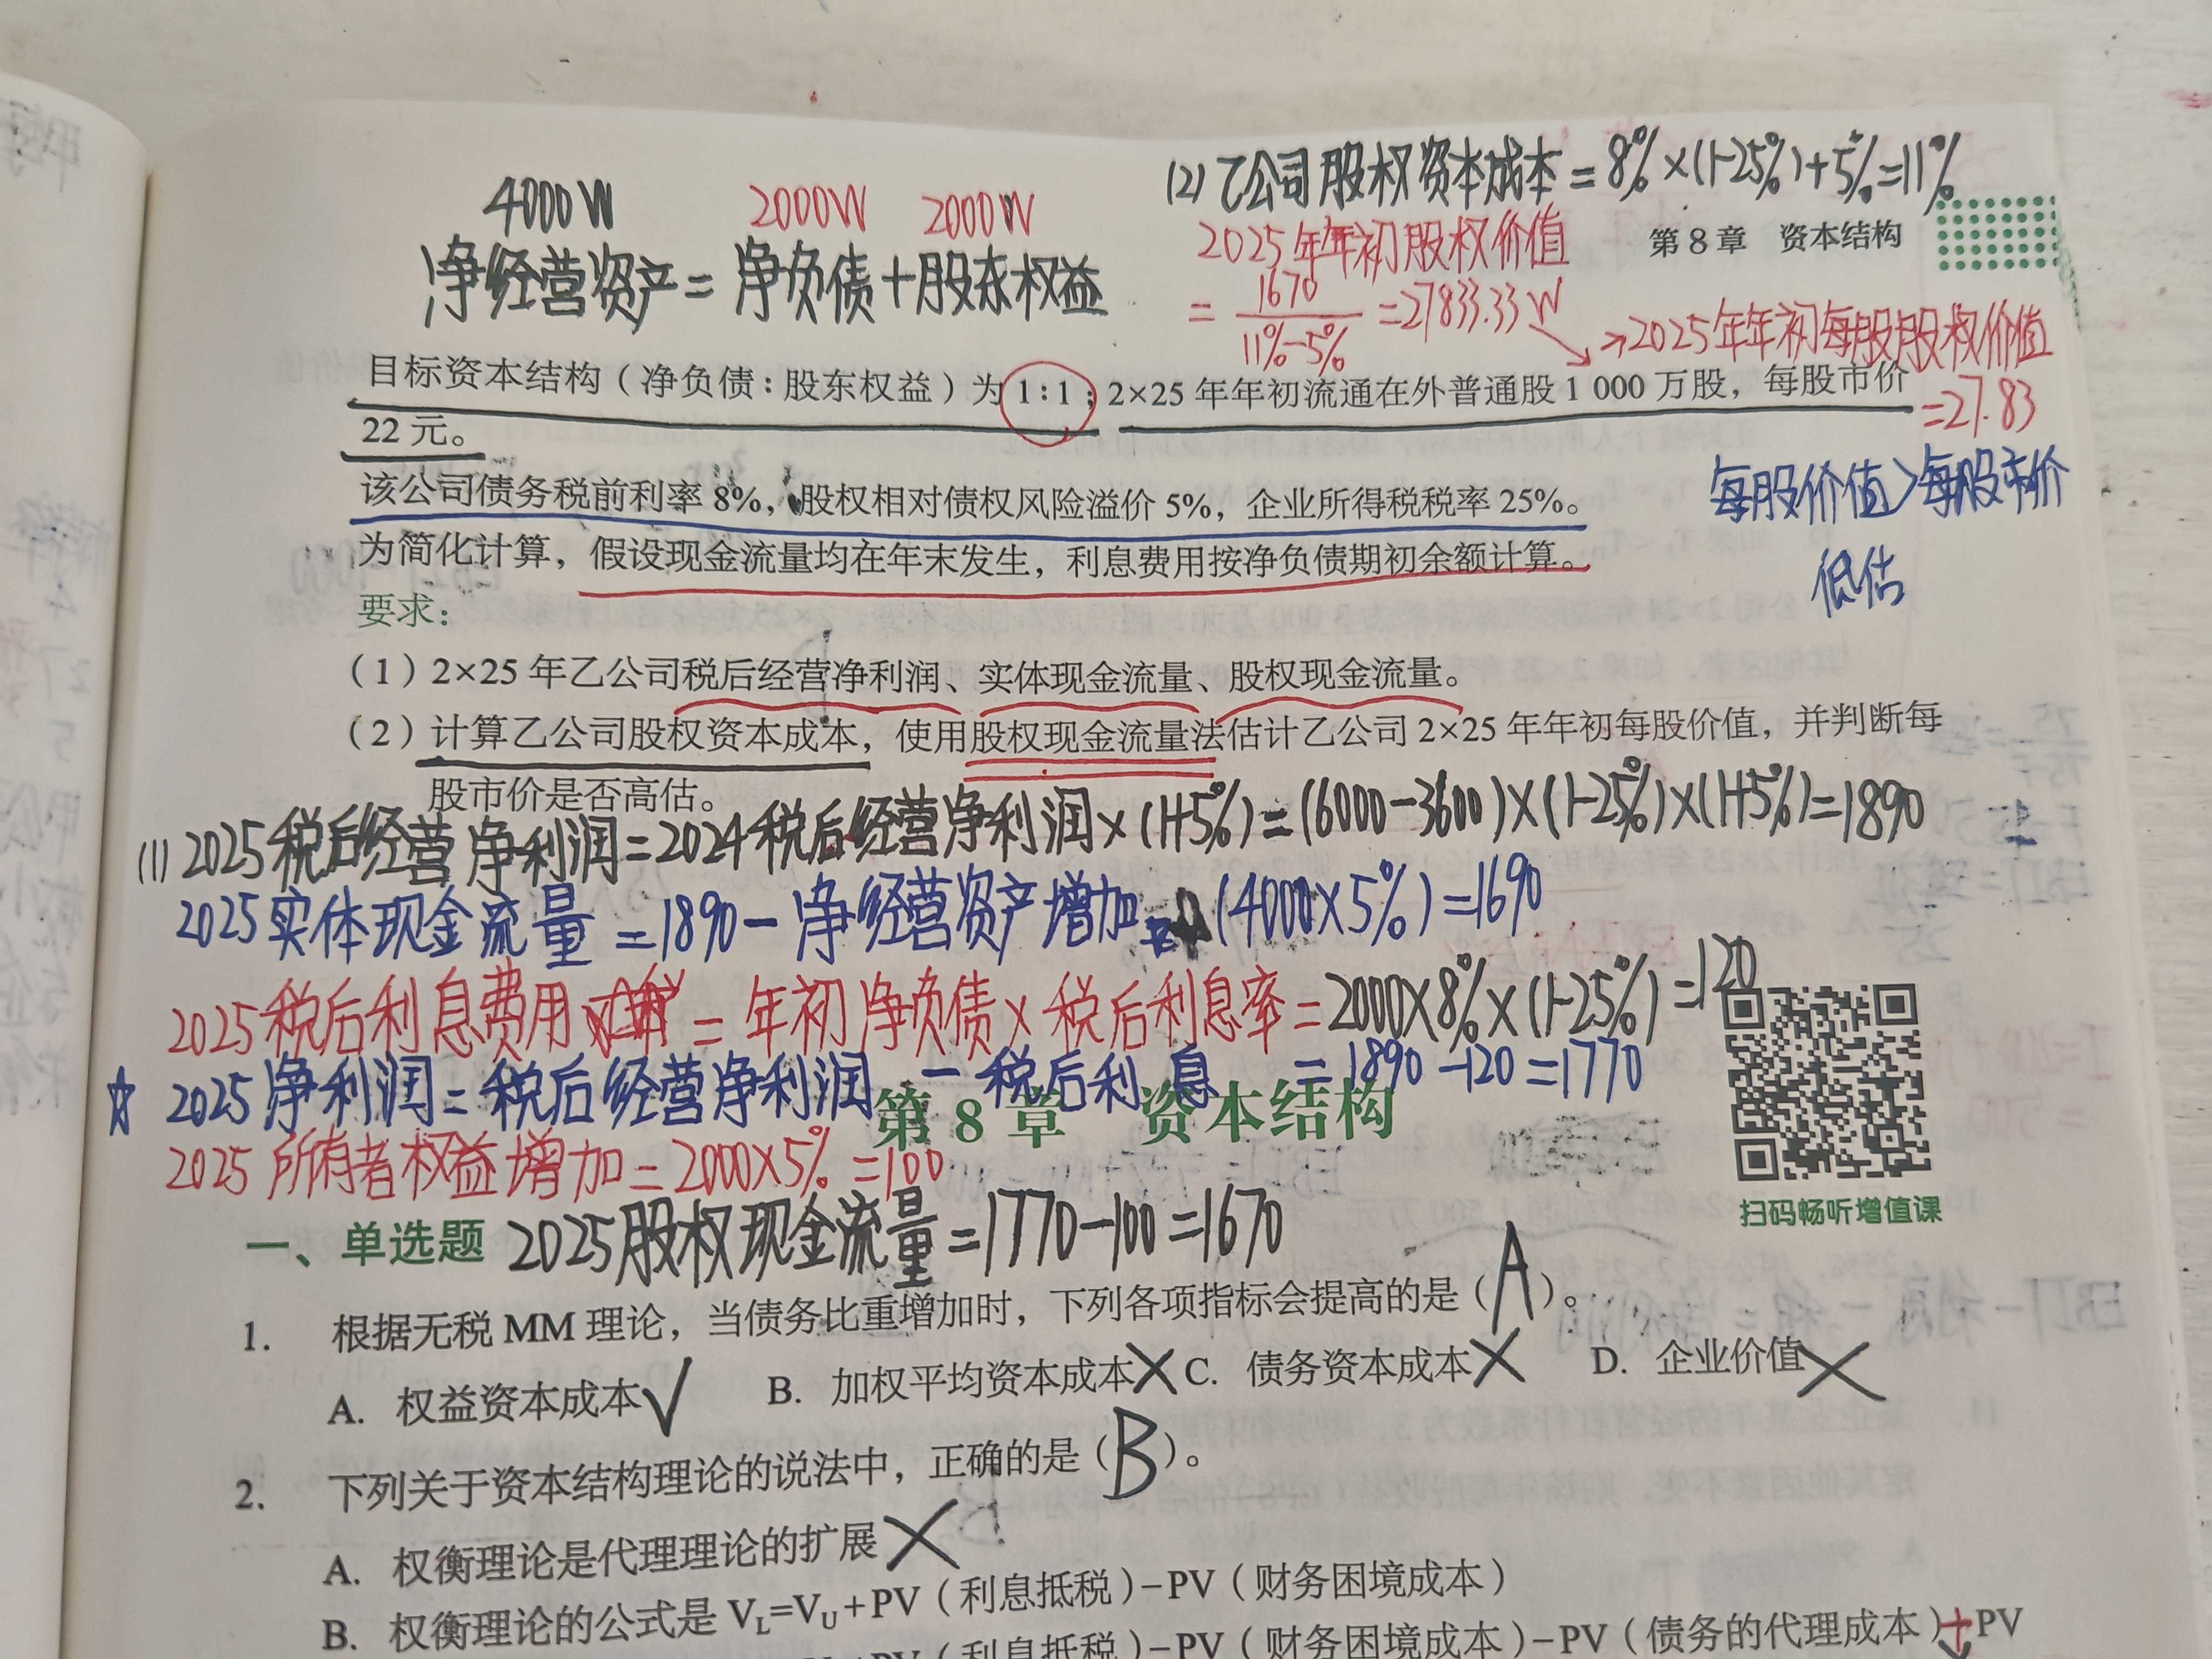 (2) 乙公司股权资本成本=8%×(1-25%)+5%=11%
4000W 2000W 2000W
净经营资产=净负债+股东权益
2025年年初股权价值
第8章 资本结构
=1670/(11%-5%)=27833.33W
→2025年年初每股股权价值
=27.83
目标资本结构(净负债:股东权益)为1:1;2×25年年初流通在外普通股1 000万股,每股市价
22元。
每股价值>每股市价
低估
该公司债务税前利率8%,股权相对债权风险溢价5%,企业所得税税率25%。
为简化计算,假设现金流量均在年末发生,利息费用按净负债期初余额计算。
要求:
(1)2×25年乙公司税后经营净利润、实体现金流量、股权现金流量。
(2)计算乙公司股权资本成本,使用股权现金流量法估计乙公司2×25年年初每股价值,并判断每
股市价是否高估。
(1) 2025税后经营净利润=2024税后经营净利润×(1+5%)=(6000-3600)×(1-25%)×(1+5%)=1890
2025实体现金流量=1890-净经营资产增加(4000×5%)=1690
2025税后利息费用=年初净负债×税后利息率=2000×8%×(1-25%)=120
☆ 2025净利润=税后经营净利润-税后利息=1890-120=1770
第8章 资本结构
2025所有者权益增加=2000×5%=100
扫码畅听增值课
一、单选题
2025股权现金流量=1770-100=1670
1. 根据无税MM理论,当债务比重增加时,下列各项指标会提高的是(A)。
A. 权益资本成本√ B. 加权平均资本成本× C. 债务资本成本× D. 企业价值×
2. 下列关于资本结构理论的说法中,正确的是(B)。
A. 权衡理论是代理理论的扩展×
B. 权衡理论的公式是V_L=V_U+PV(利息抵税)-PV(财务困境成本)
PV(利息抵税)-PV(财务困境成本)-PV(债务的代理成本)+PV